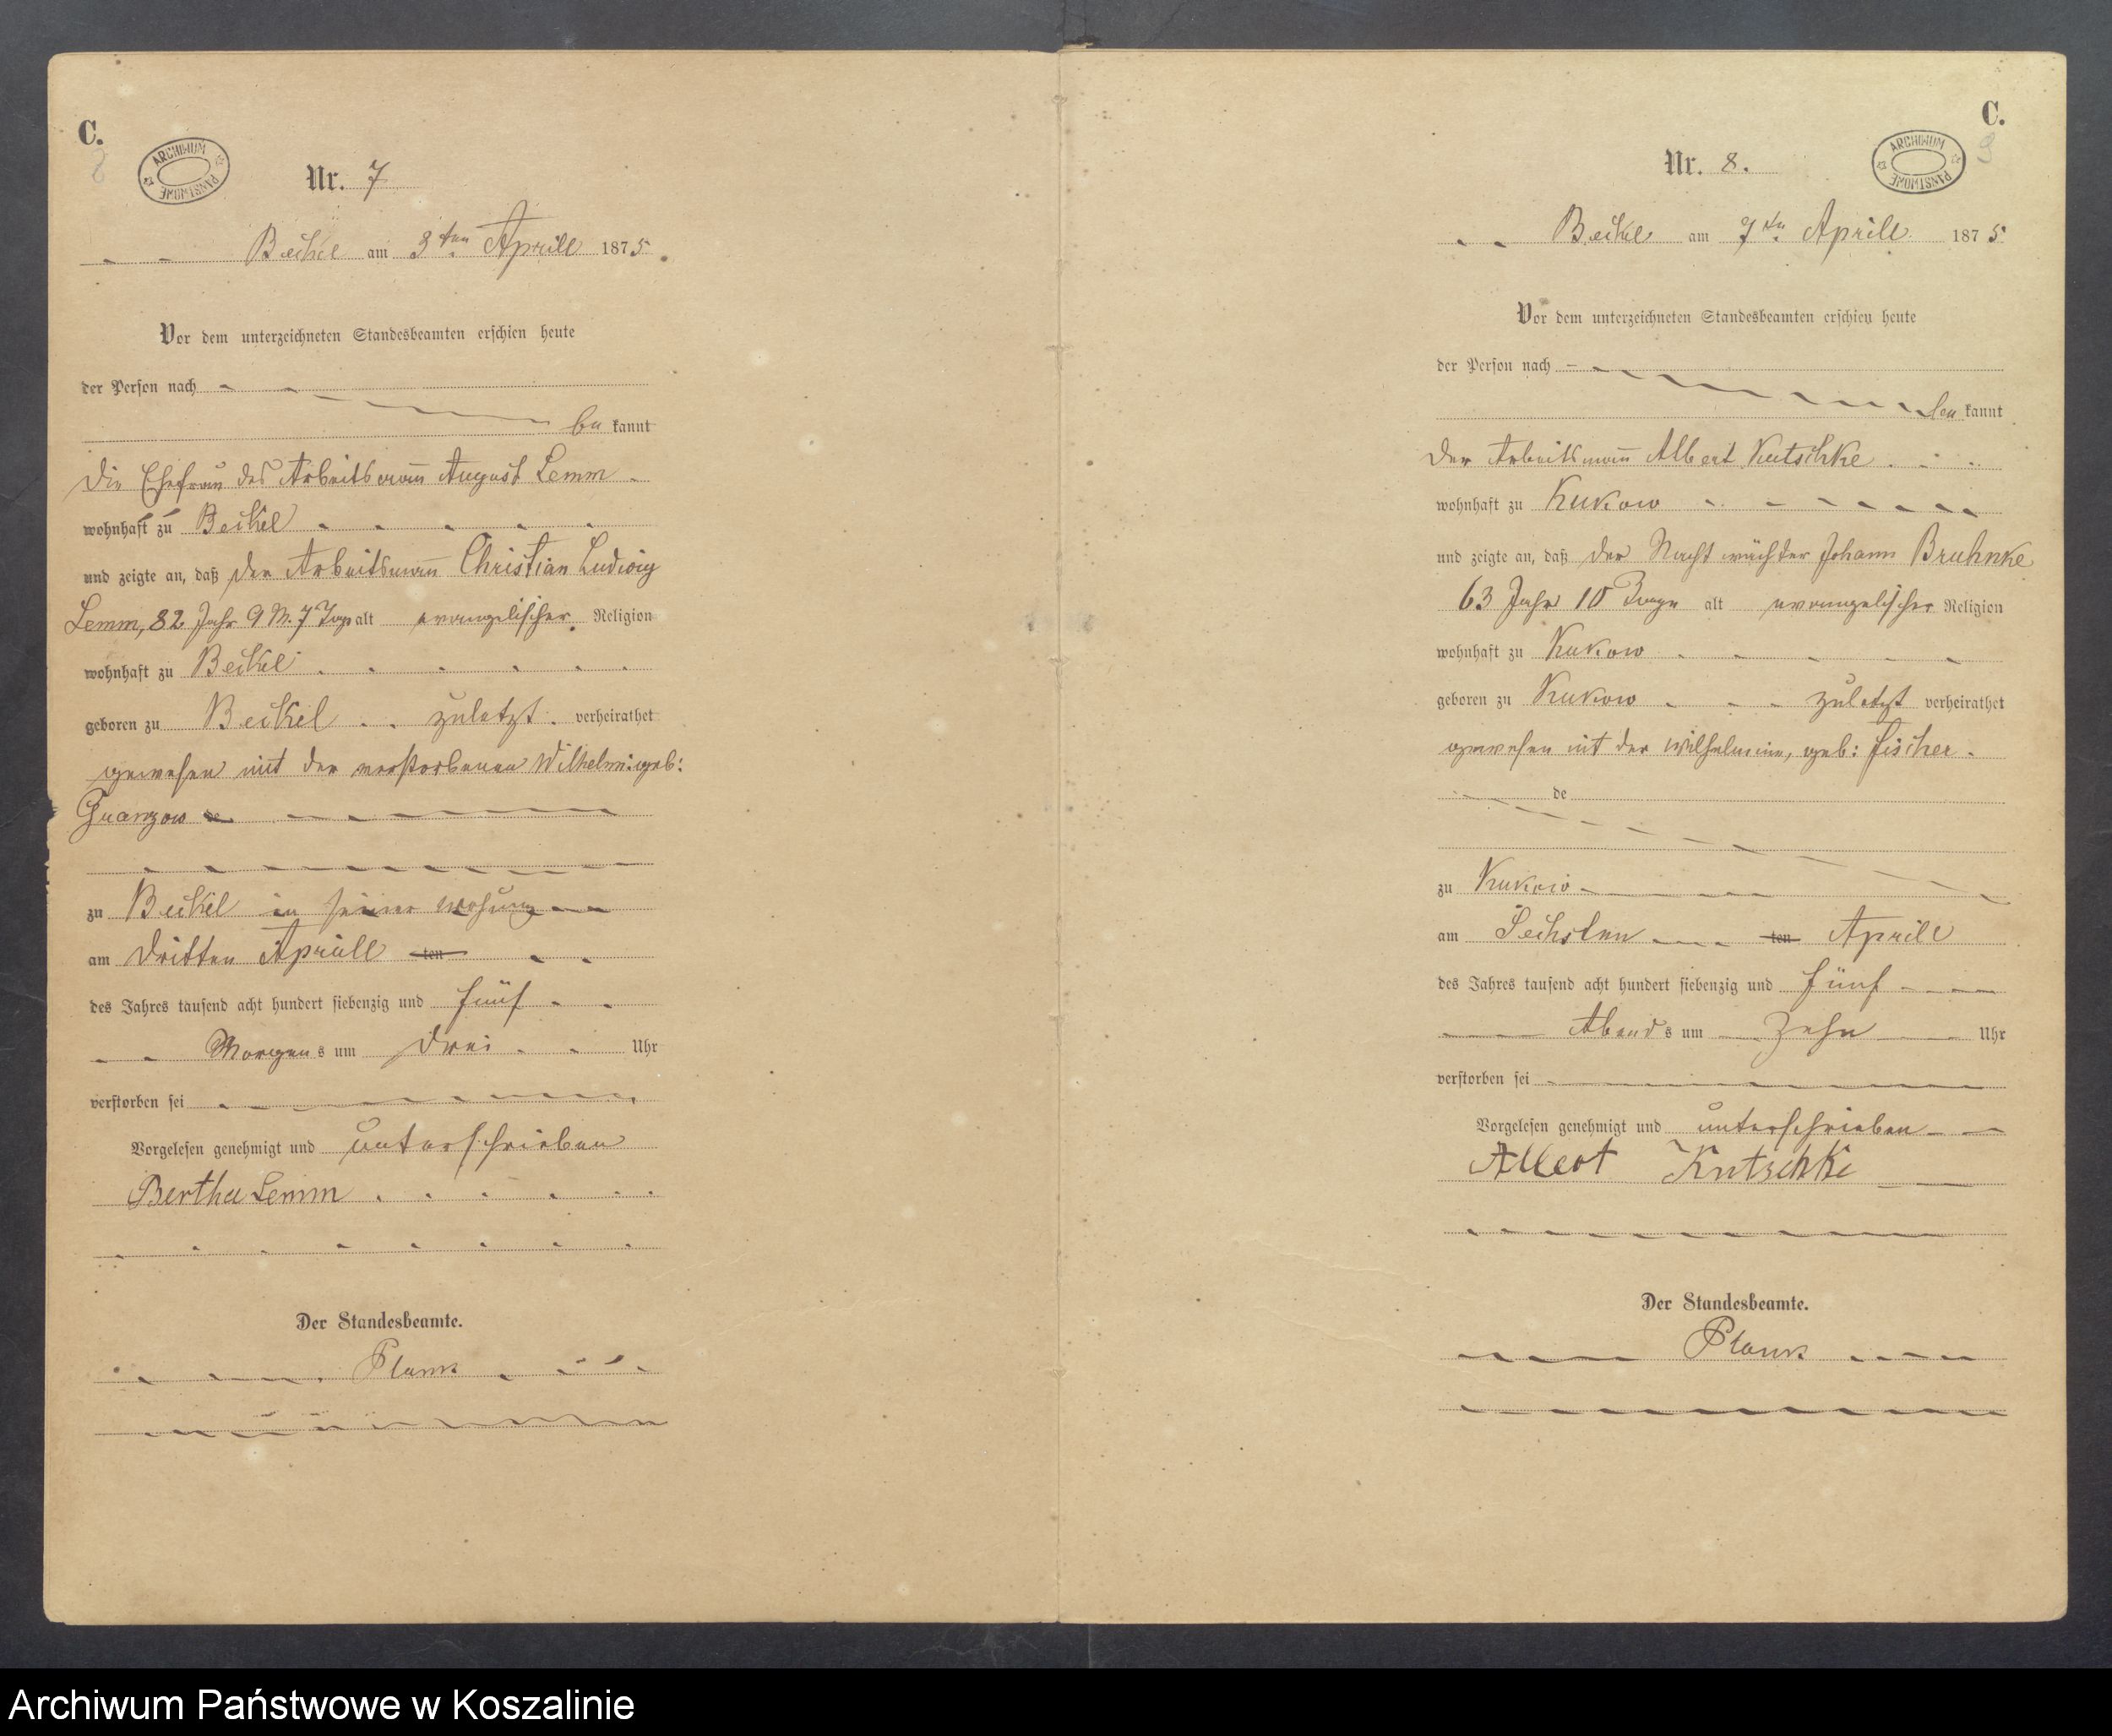 C.
8
ARCHIWUM PAŃSTWOWE
Nr. 7
Beckel am 3ten Aprill 1875.
Vor dem unterzeichneten Standesbeamten erschien heute
der Person nach
be kannt
die Ehefrau des Arbeitsmañ August Lemm
wohnhaft zu Beckel
und zeigte an, daß der Arbeitsmañ Christian Ludwig
Lemm, 82 Jahr 9 M. 7 Tage alt evangelischer Religion
wohnhaft zu Beckel
geboren zu Beckel zuletzt verheirathet
gewesen mit der verstorbenen Wilhelm: geb:
de
zu Beckel in seiner Wohung
am dritten Aprill ten
des Jahres tausend acht hundert siebenzig und fünf
Morgens um Drei Uhr
verstorben sei
Vorgelesen genehmigt und unterschrieben
Bertha Lemm
Der Standesbeamte.
Plank
C.
9
ARCHIWUM PAŃSTWOWE
Nr. 8.
Beckel am 7ten Aprill 1875
Vor dem unterzeichneten Standesbeamten erschien heute
der Person nach
be kannt
der Arbeitsmañ Albert Kutschke
wohnhaft zu Kukow
und zeigte an, daß der Nachtwächter Johann Bruhnke
63 Jahr 10 Tage alt evangelischer Religion
wohnhaft zu Kukow
geboren zu Kukow zuletzt verheirathet
gewesen mit der Wilhelmine, geb: Fischer.
de
zu Kukow
am Sechsten ten Aprill
des Jahres tausend acht hundert siebenzig und fünf
Abends um Zehn Uhr
verstorben sei
Vorgelesen genehmigt und unterschrieben
Albert Kutschke
Der Standesbeamte.
Plank
Archiwum Państwowe w Koszalinie